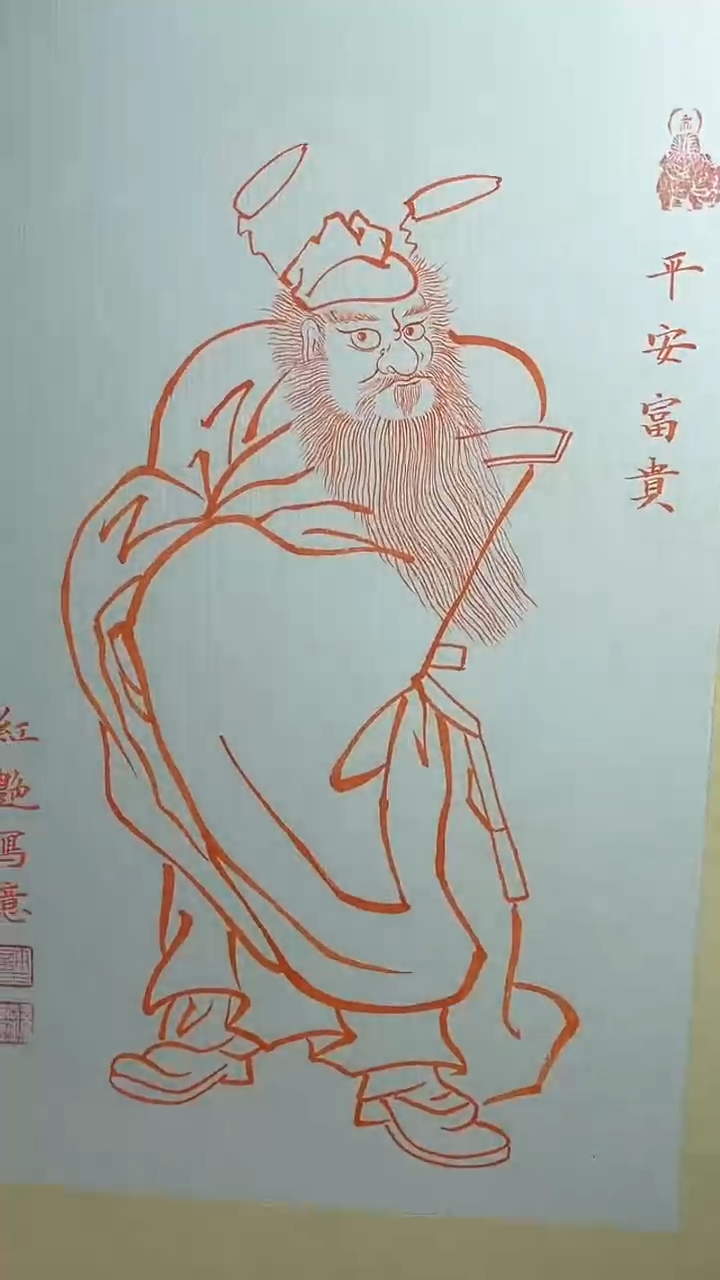 平安富貴
紅艷寫意